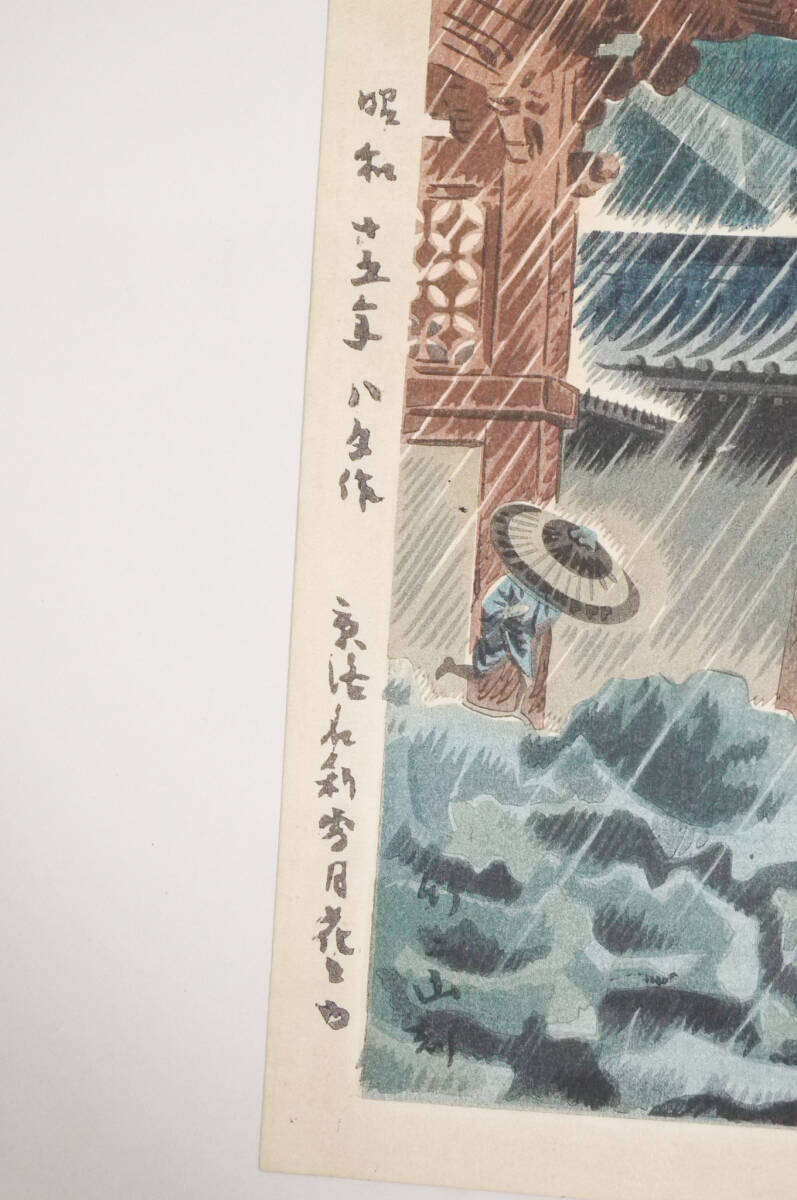 昭和十五年八月作
京洛名所雪月花之内
竹二山刻